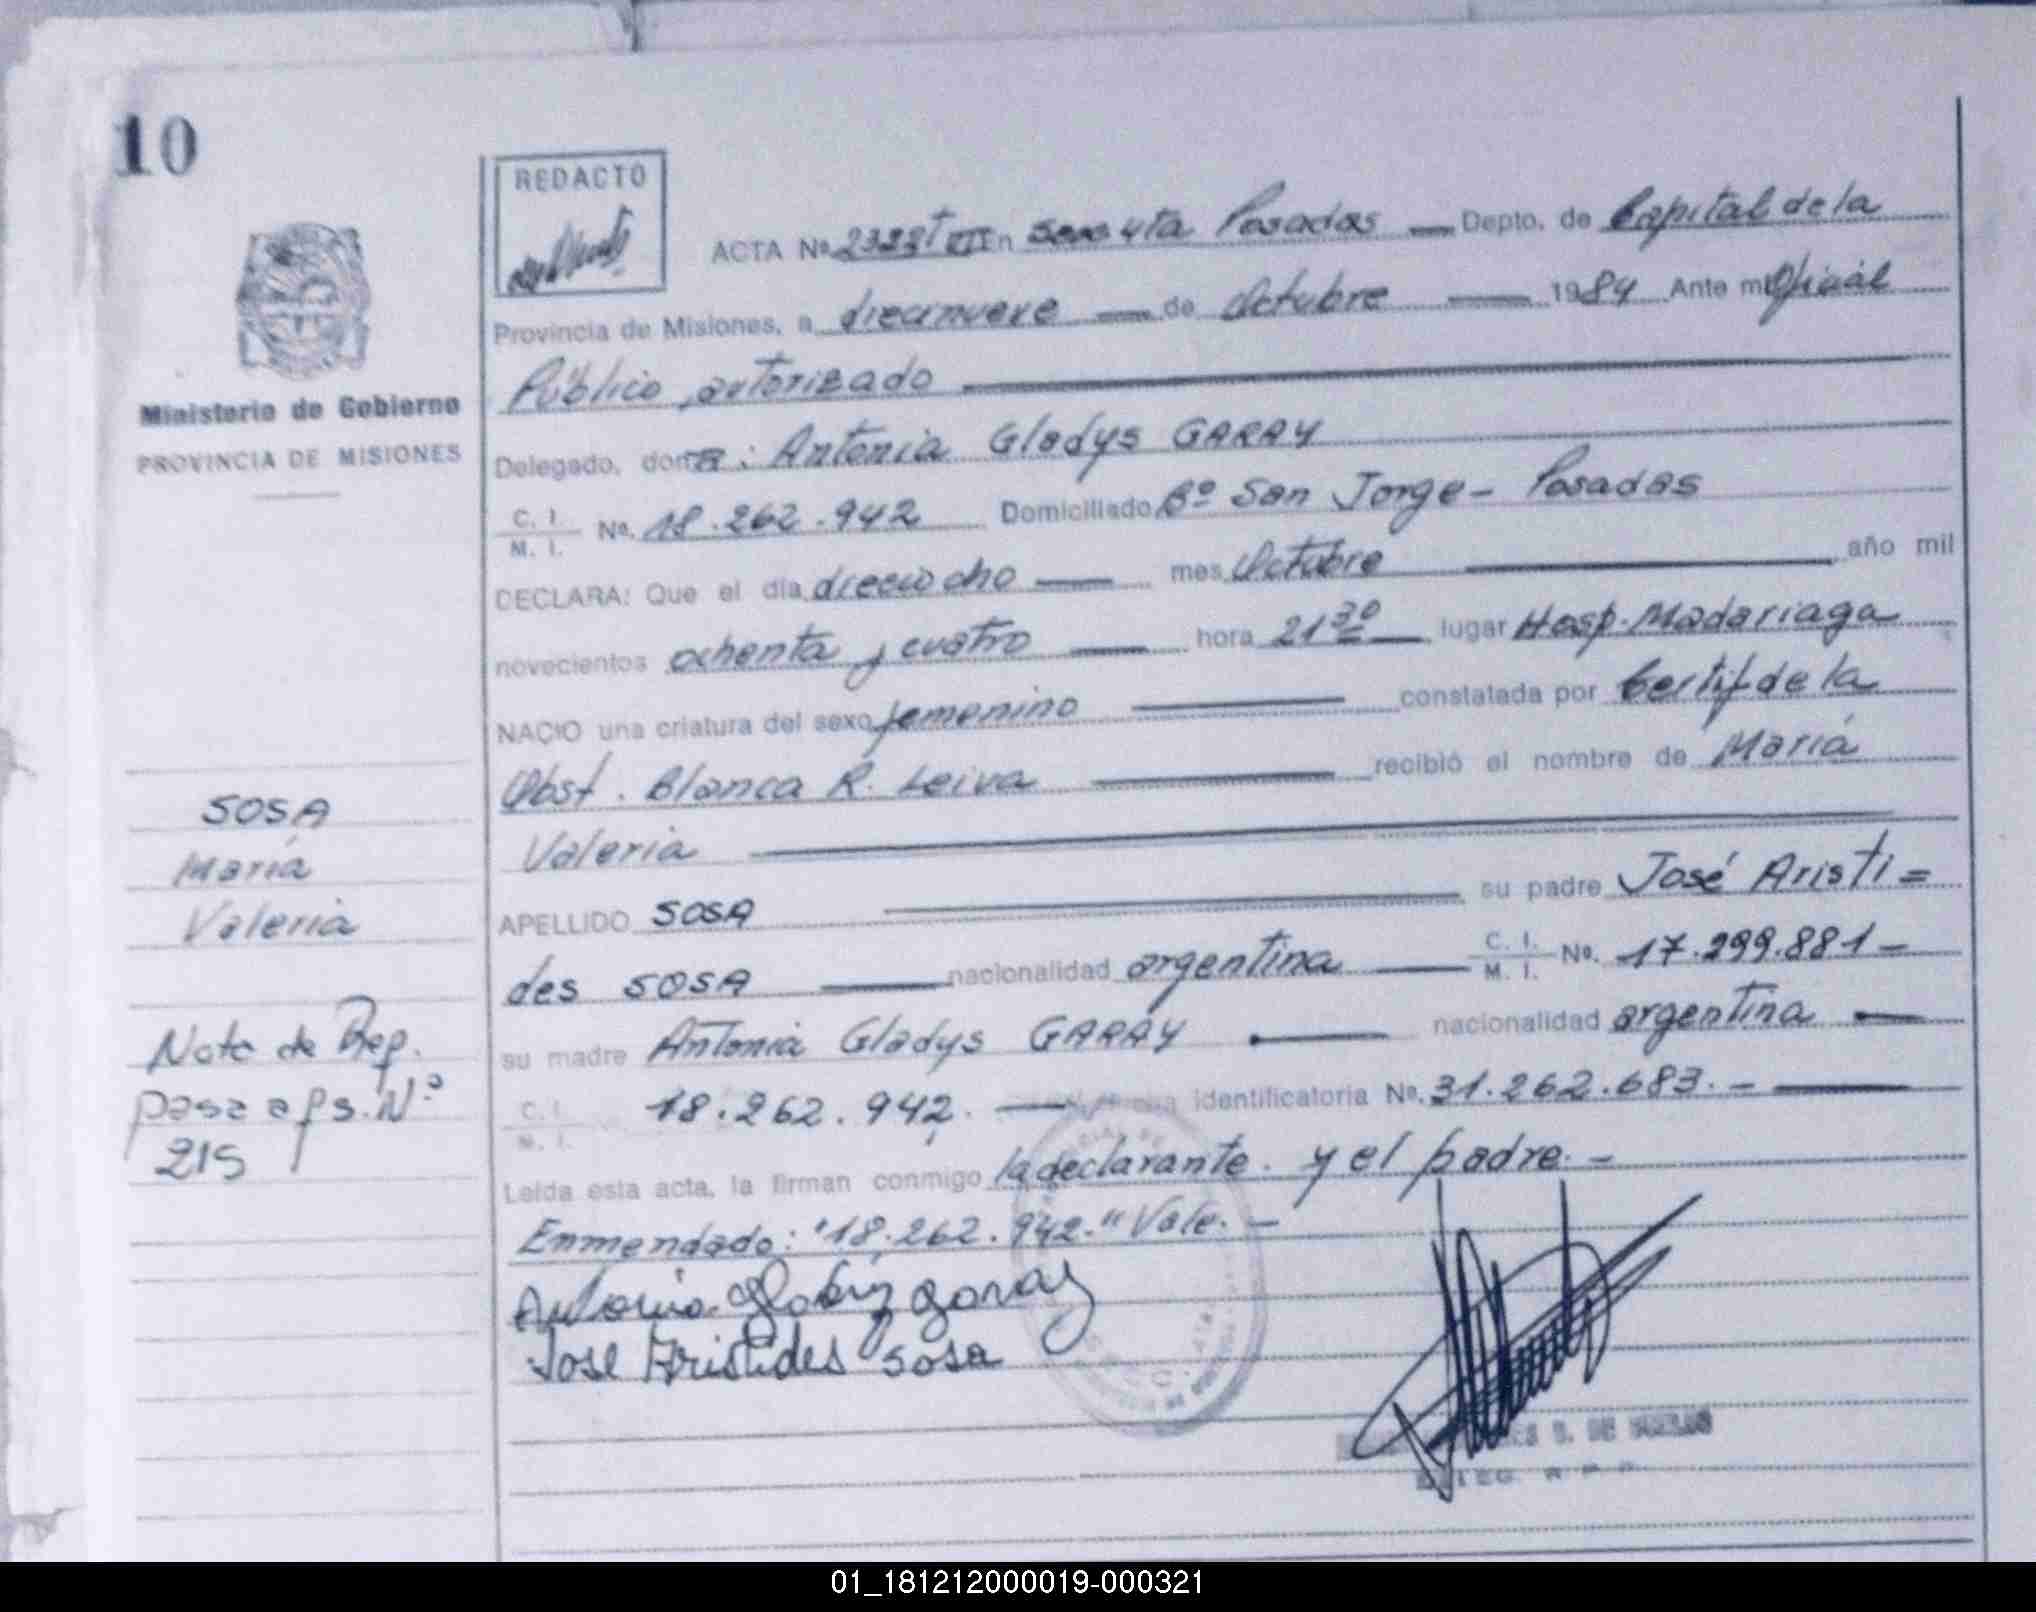 10
REDACTO
ACTA Nº 2322 T VII En Secc 4ta Posadas Depto. de Capital de la
Provincia de Misiones, a diecinueve de Octubre 1984 Ante mi Oficial
Público autorizado
Ministerio de Gobierno
PROVINCIA DE MISIONES
Delegado, doña: Antonia Gladys GARAY
C. I. M. I. No. 18.262.942 Domiciliado Bº San Jorge - Posadas
DECLARA: Que el día dieciocho mes Octubre año mil
novecientos ochenta y cuatro hora 21 30 lugar Hosp. Madariaga
NACIO una criatura del sexo femenino constatada por Certif de la
Obst. Blanca R. Leiva recibió el nombre de María
Valeria
APELLIDO SOSA su padre José Aristi=
des SOSA nacionalidad argentina C. I. M. I. No. 17.299.881-
su madre Antonia Gladys GARAY nacionalidad argentina
C. I. M. I. 18.262.942. identificatoria No. 31.262.683.-
Leída esta acta, la firman conmigo la declarante. y el padre.-
Enmendado: "18.262.942." Vale.-
Antonia Gladys Garay
Jose Aristides Sosa
SOSA
María
Valeria
Nota de Ref.
pasa a fs. Nº
215
01_181212000019-000321